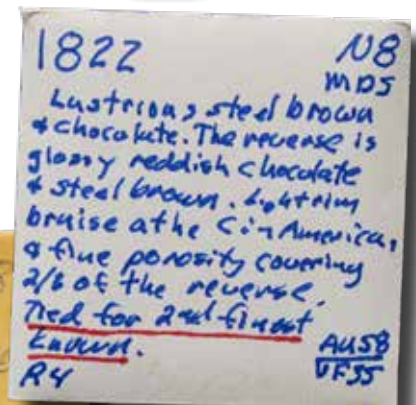 1822 N8
MDS
Lustrious steel brown
& chocolate. The reverse is
glossy reddish chocolate
& steel brown. Light rim
bruise at the C in America,
& fine porosity covering
of the reverse.
Tied for 2nd finest
known. AU58
R4 VF35